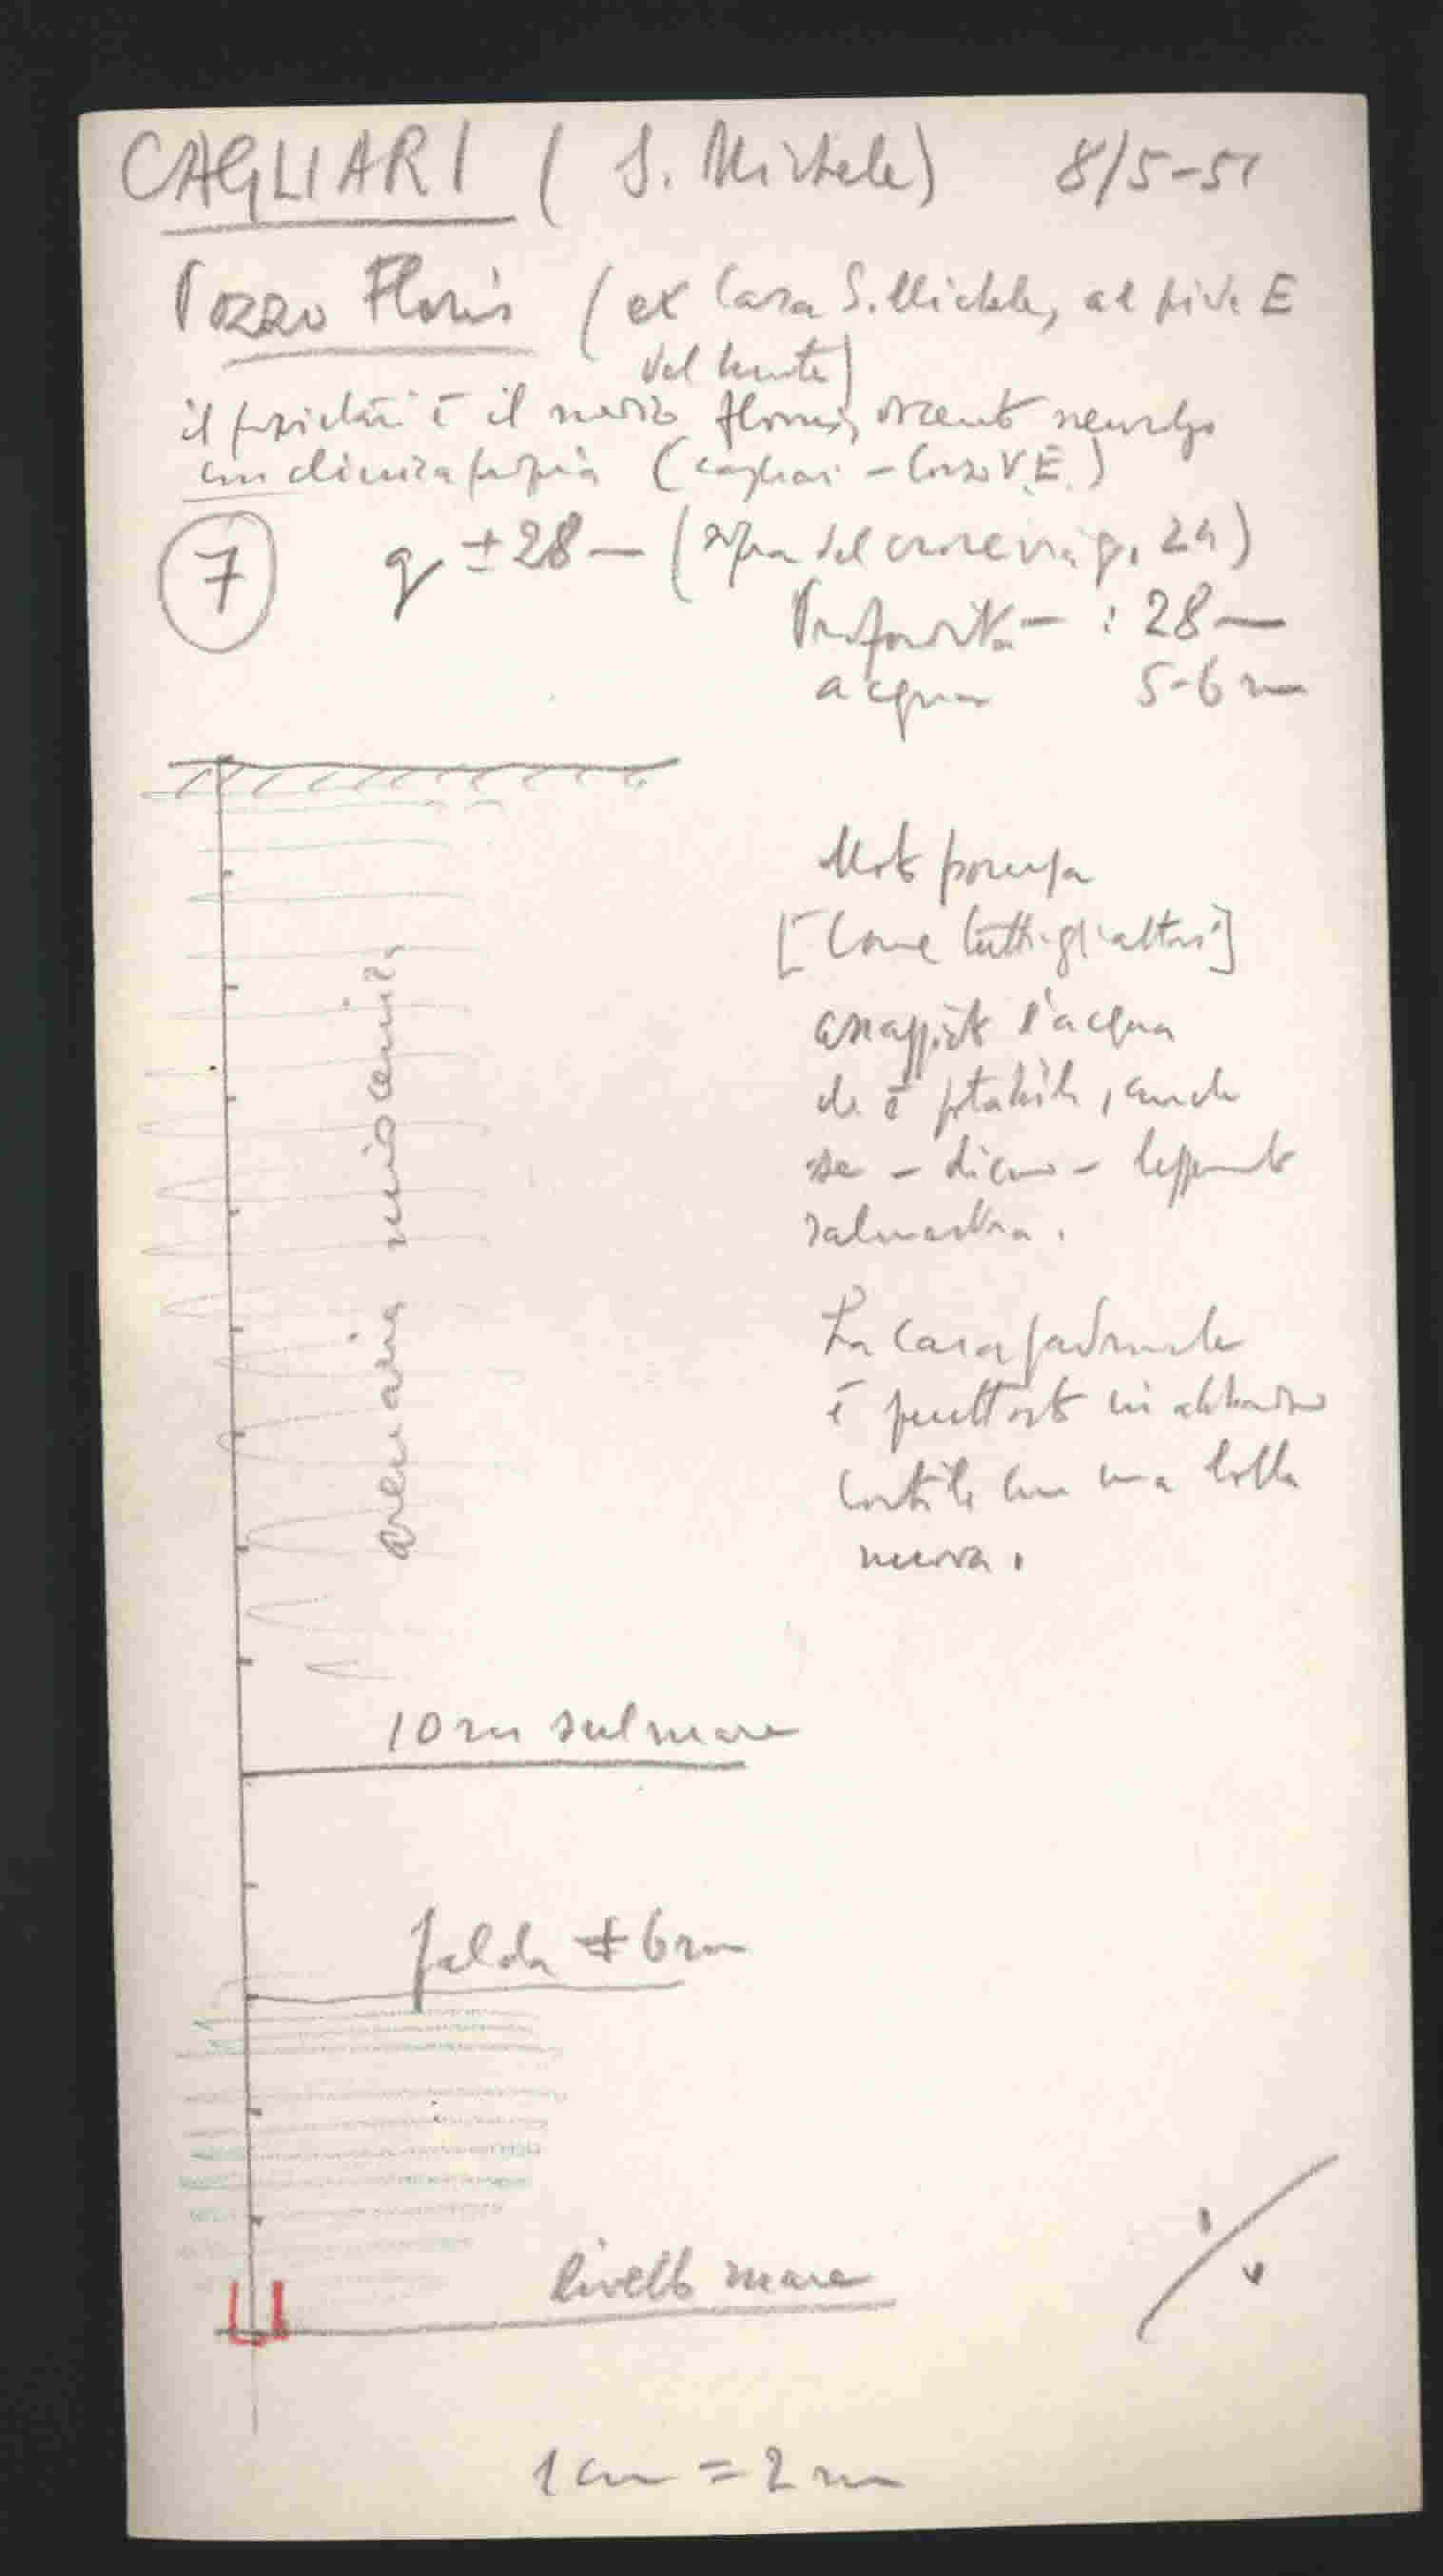 CAGLIARI ( S. Michele) 8/5-51
Pozzo Floris (ex Casa S. Michele, al piede E
del monte)
il è il medico Floris, docente neurolgo
con clinica propria (Cagliari - Corso V.E.)
7 q ± 28 m (sopra del crocevia q. 24)
Profondità m : 28 m
acqua 5-6 m
Moto pompa
[Come tutti gli altri]
l'acqua
che è potabile, anche
se - dicono -
salmastra.
La casa padronale
è piuttosto in abbandono
cortile con una lolla
nuova.
arenaria miocenica
10 m sul mare
falda ± 6 m
livello mare
1 cm = 2 m